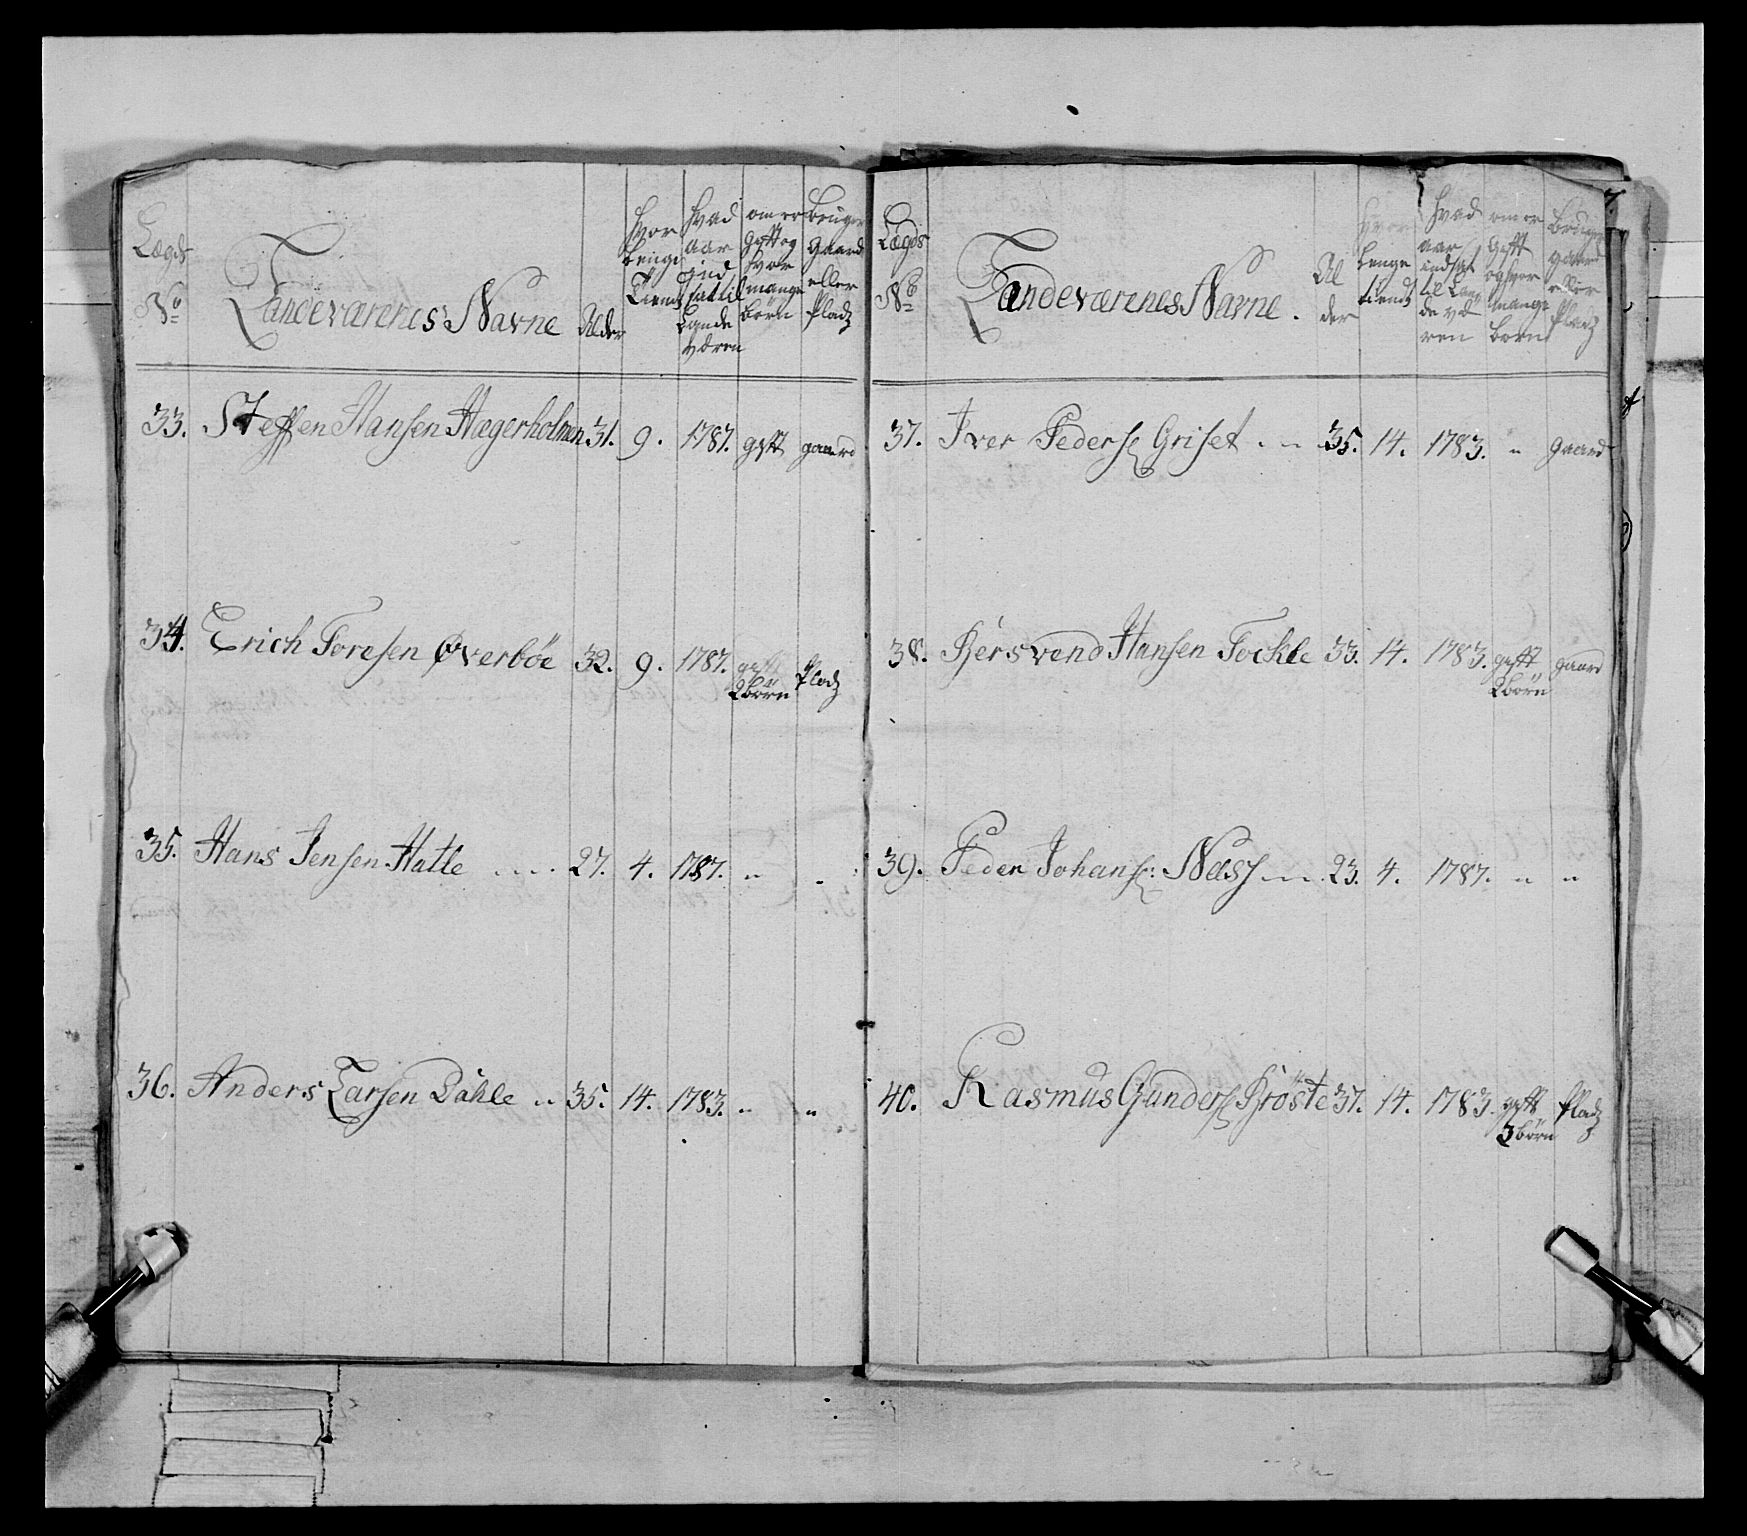 Lægds
No
Landeværenes Navne
Alder
Hvor
lenge
Tient
Hvad
aar
ind
sat til
Lande
væren
om er
gift og
hvor
mange
börn
bruger
Gaard
eller
Pladz
33. Steffen Hansen Hægerholmen 31. 9. 1787. gift gaard
34. Erich Toresen Øverböe 32. 9. 1787. gift Pladz
2 börn
35. Hans Jensen Hatle 27. 4. 1787. " "
36. Anders Larsen Dahle 35. 14. 1783. " "
Lægds
No
Landeværenes Navne.
Al
der
Hvor
lenge
tient
Hvad
aar
indsat
til Lan
de væ
ren
om er
gift
og hvor
mange
börn
bruger
gaard
eller
Pladz
37. Iver Peders: Griset 35. 14. 1783. " gaard
38. Kersvend Hansen Tockle 33. 14. 1783. gift gaard
2 börn
39. Peder Johans: Næss 23. 4. 1787. " "
40. Rasmus Gunders: Kröste 37. 14. 1783. gift Pladz
3 börn